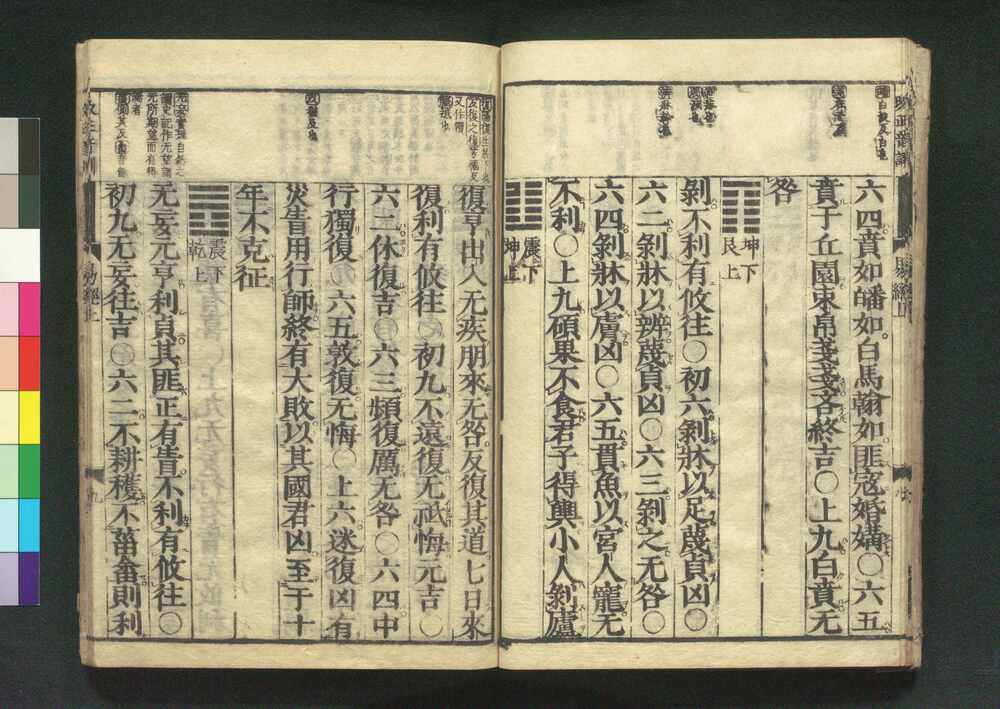 六四賁如皤如白馬翰如匪寇婚媾〇六五
賁于丘園束帛戔戔吝終吉〇上九白賁无
咎
坤下
艮上
剝不利有攸往〇初六剝牀以足蔑貞凶〇
六二剝牀以辨蔑貞凶〇六三剝之无咎〇
六四剝牀以膚凶〇六五貫魚以宮人寵无
不利〇上九碩果不食君子得輿小人剝廬
震下
坤上
復亨出入无疾朋來无咎反復其道七日來
復利有攸往〇初九不遠復无祗悔元吉〇
六二休復吉〇六三頻復厲无咎〇六四中
行獨復〇六五敦復无悔〇上六迷復凶有
災眚用行師終有大敗以其國君凶至于十
年不克征
震下
乾上
无妄元亨利貞其匪正有眚不利有攸往〇
初九无妄往吉〇六二不耕穫不菑畬則利
易經上